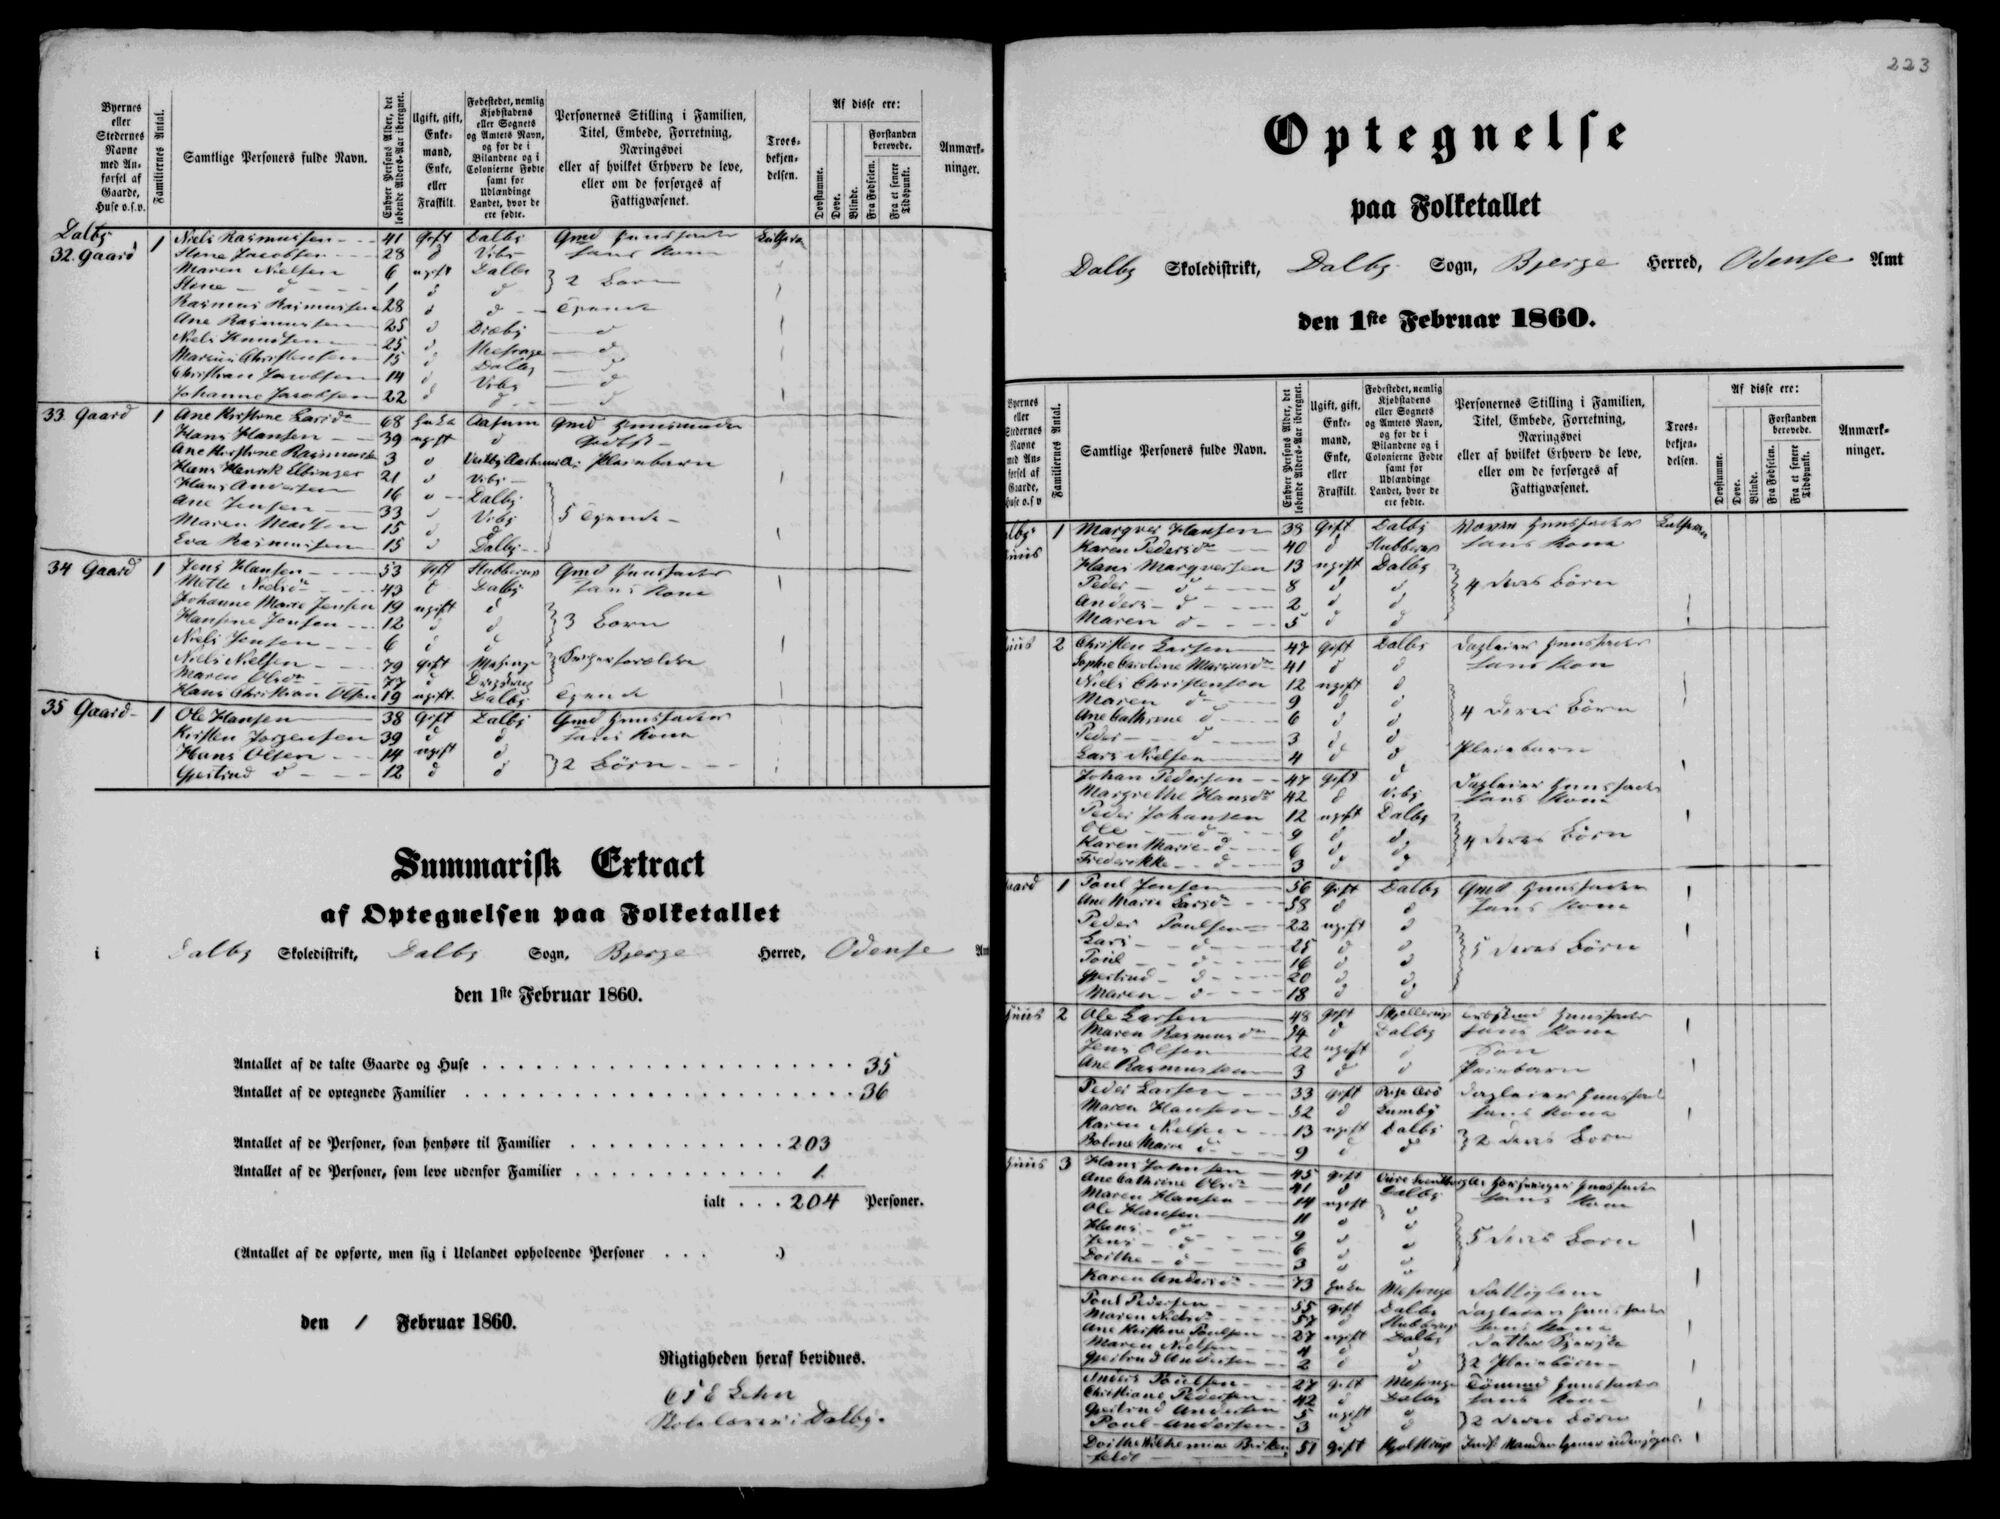 Byernes
eller
Stedernes
Navne
med An-
førsel af
Gaarde,
Huse o.s.v.
Familiernes Antal.
Samtlige Personers fulde Navn.
Enhver Persons Alder, det
løbende Alders-Aar iberegnet.
Ugift, gift,
Enke-
mand,
Enke,
eller
Fraskilt.
Fødestedet, nemlig
Kjøbstadens
eller Sognets
og Amtets Navn,
og for de i
Bilandene og i
Colonierne Fødte
samt for
Udlændinge
Landet, hvor de
ere fødte.
Personernes Stilling i Familien,
Titel, Embede, Forretning,
Næringsvei
eller af hvilket Erhverv de leve,
eller om de forsørges af
Fattigvæsenet.
Troes-
bekjen-
delsen.
Af disse ere:
Døvstumme.
Døve.
Blinde.
Forstanden
berøvede.
Fra Fødselen.
Fra et senere
Tidspunkt.
Anmærk-
ninger.
Dalby
32. Gaard 1 Niels Rasmussen 41 gift Dalby Gmd Huusfader Luthersk
Stine Jacobsen 28 d Viby hans Kone
Maren Nielsen 6 ugift Dalby } 2 Børn
Stine d 1 d d
Rasmus Rasmussen 28 d d Tyende
Ane Rasmussen 25 d Dræby d
Niels Knudsen 25 d d
Marius Christensen 15 d Dalby d
Christian Jacobsen 14 d Viby d
Johanne Jacobsen 22 d d
33 Gaard 1 Ane Kirstine Larsd 68 Enke Aasum Gmd Huusmoder
Hans Hansen 39 ugift d
Ane Kirstine Rasmussen 3 d Pleiebarn
Hans Henrik Ebbinger 21 d Viby
Hans Andersen 16 d Dalby } 5 Tyende
Ane Jensen 33 d Viby
Maren Madsen 15 d d
Eva Rasmussen 15 d Dalby
34 Gaard 1 Jens Hansen 53 gift Stubberup Gmd Huusfader
Mette Nielsd 43 d Dalby hans Kone
Johanne Marie Jensen 19 ugift d } 3 Børn
Hansine Jensen 12 d d
Niels Jensen 6 d d
Niels Nielsen 79 gift Mesinge } Svigerforældre
Maren Olsd 77 d
Hans Christian Olsen 19 ugift Dalby Tyende
35 Gaard 1 Ole Hansen 38 gift Dalby Gmd Huusfader
Kirsten Jørgensen 39 d d hans Kone
Hans Olsen 14 ugift d } 2 Børn
Giertrud d 12 d d
Summarisk Extract
af Optegnelsen paa Folketallet
i Dalby Skoledistrikt, Dalby Sogn, Bjerge Herred, Odense Amt
den 1ste Februar 1860.
Antallet af de talte Gaarde og Huse 35
Antallet af de optegnede Familier 36
Antallet af de Personer, som henhøre til Familier 203
Antallet af de Personer, som leve udenfor Familier 1
ialt 204 Personer.
(Antallet af de opførte, men sig i Udlandet opholdende Personer . . . .)
den 1 Februar 1860.
Rigtigheden heraf bevidnes.
Skolelærer i Dalby.
223
Optegnelse
paa Folketallet
i Dalby Skoledistrikt, Dalby Sogn, Bjerge Herred, Odense Amt
den 1ste Februar 1860.
Byernes
eller
Stedernes
Navne
med An-
førsel af
Gaarde,
Huse o.s.v
Familiernes Antal.
Samtlige Personers fulde Navn.
Enhver Persons Alder, det
løbende Alders-Aar iberegnet.
Ugift, gift,
Enke-
mand,
Enke,
eller
Fraskilt.
Fødestedet, nemlig
Kjøbstadens
eller Sognets
og Amtets Navn,
og for de i
Bilandene og i
Colonierne Fødte
samt for
Udlændinge
Landet, hvor de
ere fødte.
Personernes Stilling i Familien,
Titel, Embede, Forretning,
Næringsvei
eller af hvilket Erhverv de leve,
eller om de forsørges af
Fattigvæsenet.
Troes-
bekjen-
delsen.
Af disse ere:
Døvstumme.
Døve.
Blinde.
Forstanden
berøvede.
Fra Fødselen.
Fra et senere
Tidspunkt.
Anmærk-
ninger.
Dalby 1 Marqver Hansen 38 gift Dalby Væver Huusfader Luthersk
Huus Karen Pedersd 40 d Stubberup hans Kone
Hans Marqversen 13 ugift Dalby } 4 deres Børn
Peder d 8 d d
Anders d 2 d d
Maren d 5 d d
Huus 2 Christen Larsen 47 gift Dalby Dagleier Huusfader
Sophie Caroline Mariusd 41 d d hans Kone
Niels Christensen 12 ugift d } 4 deres Børn
Maren d 9 d d
Ane Cathrine d 6 d d
Peder d 3 d d
Lars Nielsen 4 d d Pleiebarn
Johan Pedersen 47 gift d Dagleier Huusfader
Margrethe Hansd 42 d Viby hans Kone
Peder Johansen 12 ugift Dalby } 4 deres Børn
Ole d 9 d d
Karen Marie d 6 d d
Frederikke d 3 d d
Gaard 1 Poul Jensen 56 gift Dalby Gmd Huusfader
Ane Marie Larsd 58 d d hans Kone
Peder Poulsen 22 ugift d } 5 deres Børn
Lars d 25 d d
Poul d 16 d d
Giertrud d 20 d d
Maren d 18 d d
Huus 2 Ole Larsen 48 gift Skjellerup Huusfader
Maren Rasmusd 54 d Dalby hans Kone
Jens Olsen 22 ugift d Søn
Ane Rasmussen 3 d d Pleiebarn
Peder Larsen 33 gift Dagleier Huusfader
Maren Hansen 52 d Lumby hans Kone
Karen Nielsen 13 ugift Dalby } 2 deres Børn
Bolene Marie d 9 d d
Huus 3 Hans Johnsen 45 gift Huusfader
Ane Cathrine Olsd 41 d Dalby hans Kone
Maren Hansen 14 ugift } 5 deres Børn
Ole Hansen 11 d d
Hans d 9 d d
Jens d 6 d d
Dorthe d 3 d d
Karen Andersd 73 Enke Mesinge Fattiglem
Poul Pedersen 55 gift Dalby Dagleier Huusfader
Maren Nielsd 57 d Stubberup hans Kone
Ane Kirstine Poulsen 27 ugift Dalby Datter
Maren Nielsen 4 d d } 2 Pleiebørn
Giertrud Andersen 2 d d
Anders Poulsen 27 gift Mesinge Tømmd Huusfader
Christiane Pedersen 42 d Dalby hans Kone
Giertrud Andersen 5 ugift d } 2 deres Børn
Poul Andersen 3 d d
Dorthe Wilhelmine 51 gift